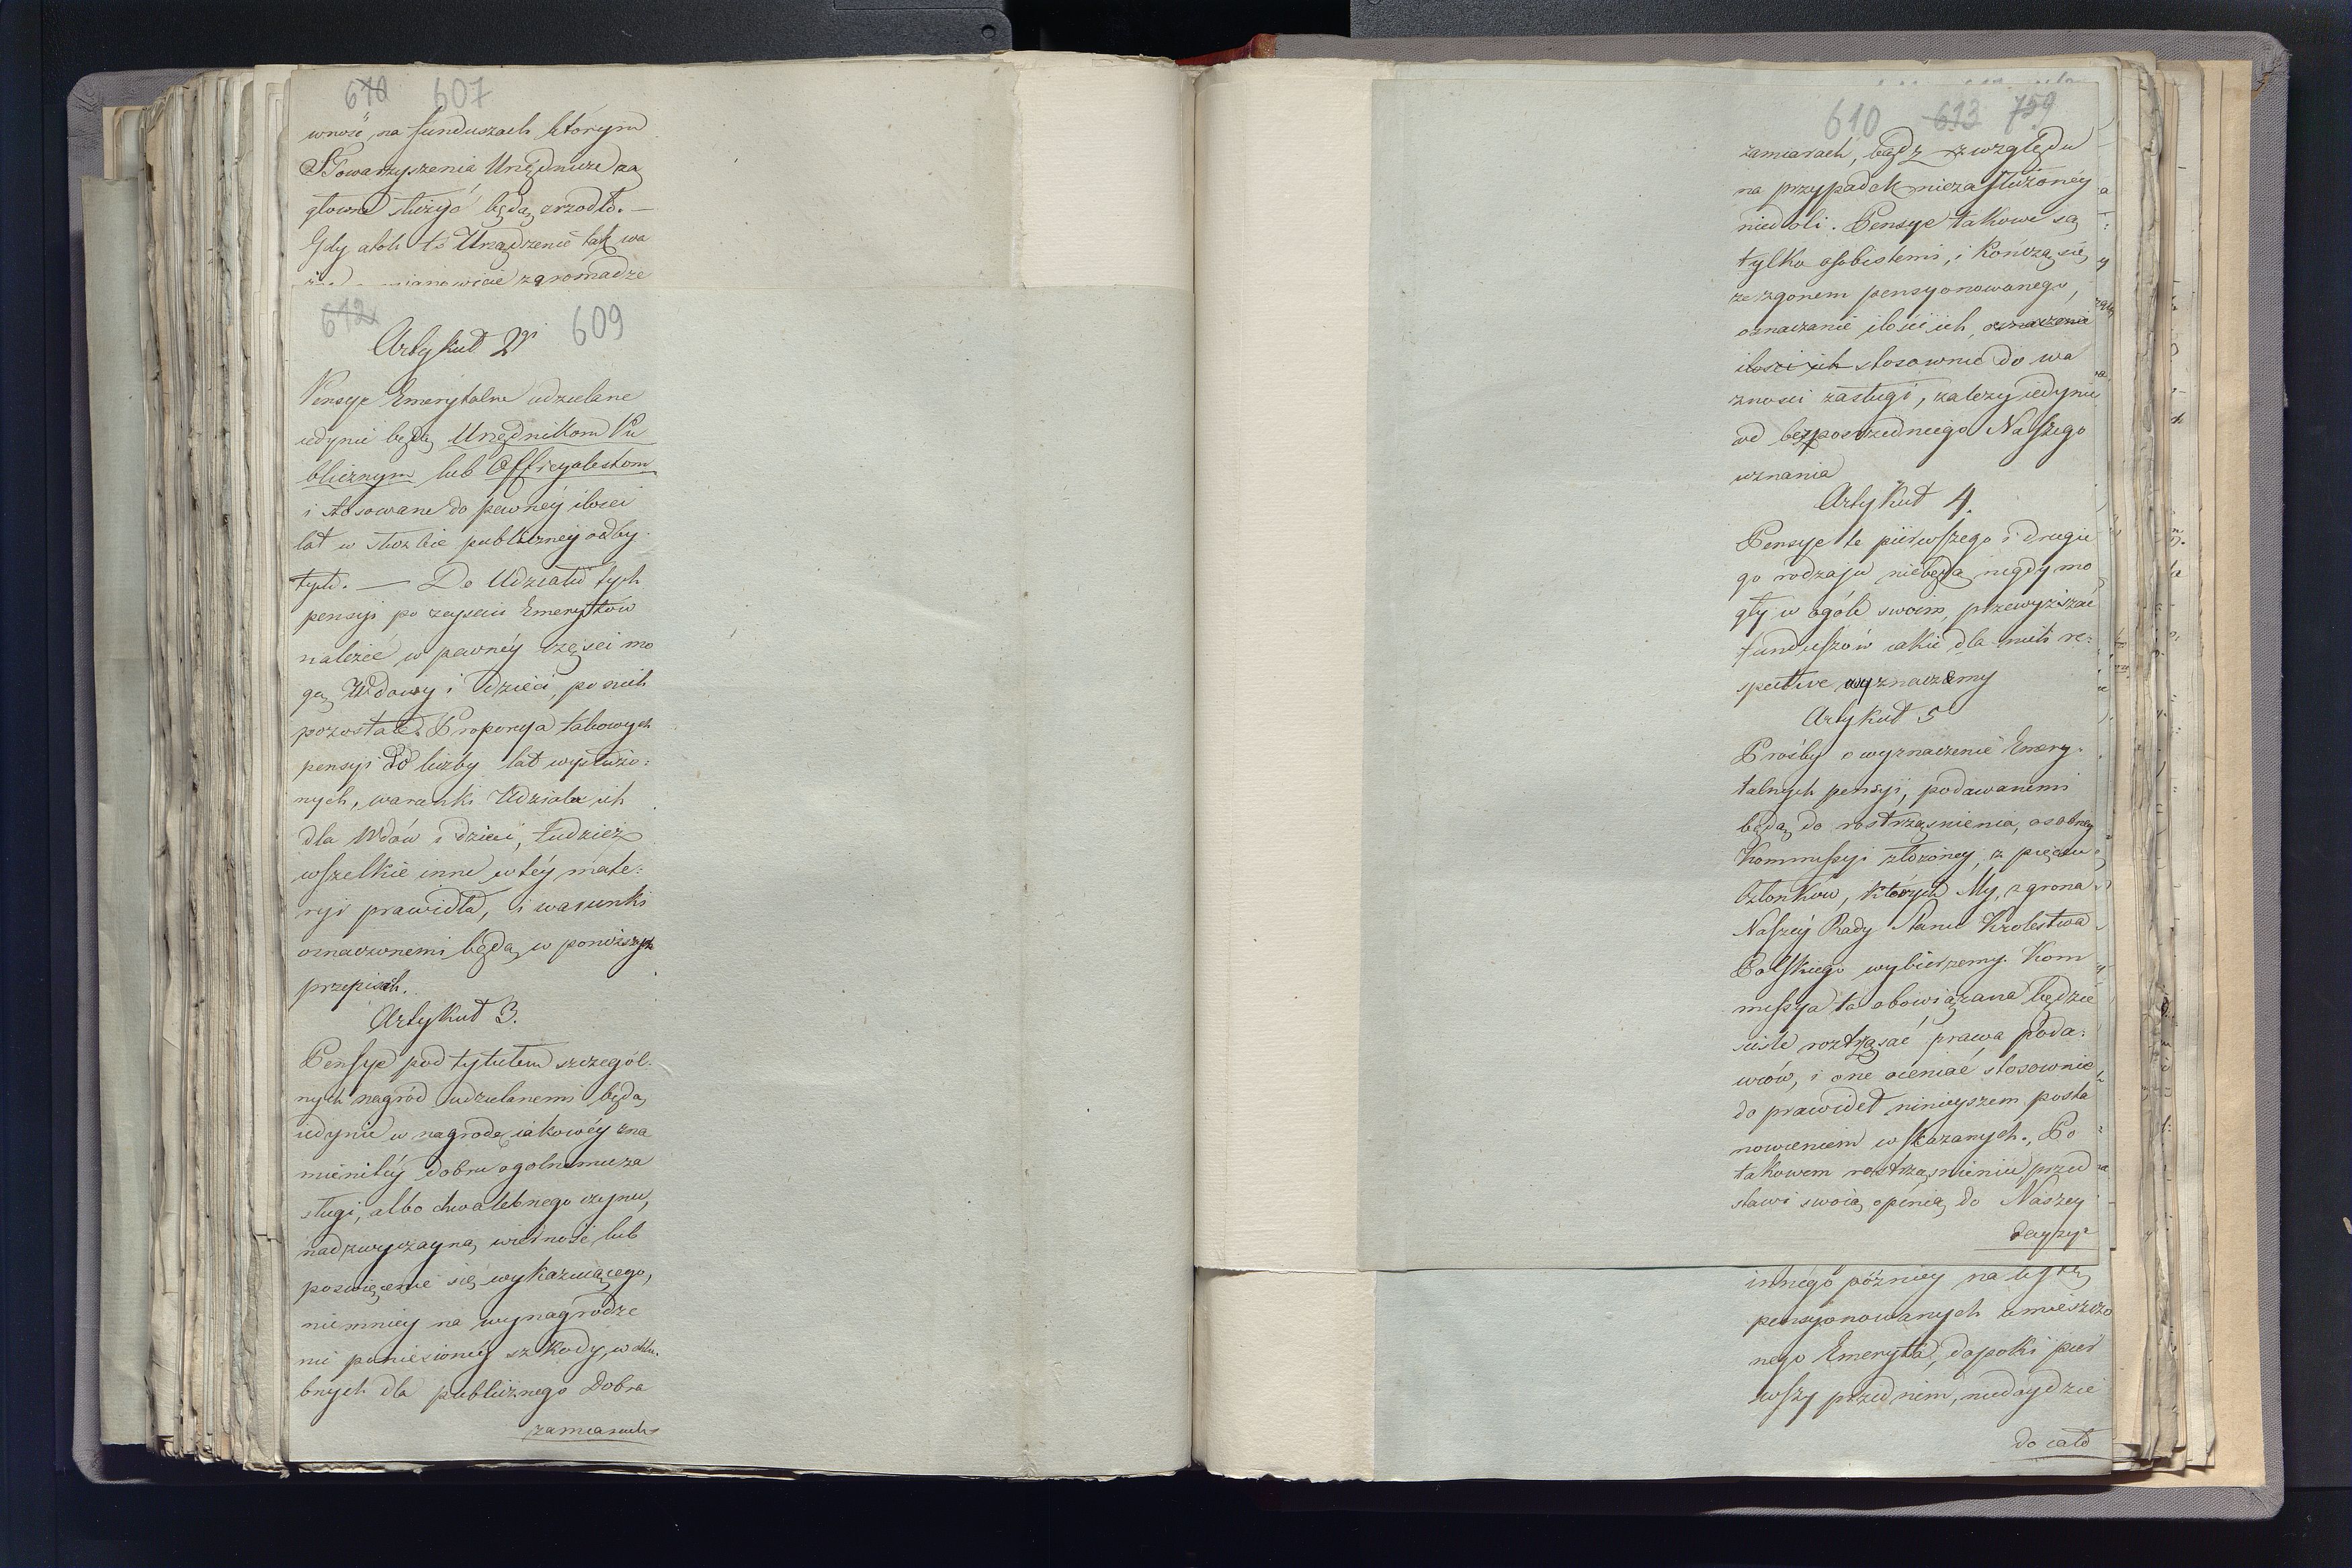 610 607
wność, na funduszach którym
Stowarzyszenia Urzędnicze za
główne służyć będą zrzodło. —
Gdy atoli to Urządzenie tak wa
mianowicie zgromadze
612 609
Artykuł 2gi
Pensye Emerytalne udzielane
iedynie będą Urzędnikom Pu
blicznym lub Officyalistom
i stosowane do pewnéy ilości
lat w służbie publicznéy odby-
tych. — Do Udziału tych
pensyi po zeyściu Emerytów
należéć w pewnéy części mo
gą Wdowy i dzieci, po nich
pozostałe. Proporcya takowych
pensyi do liczby lat wysłużo:
nych, warunki Udziału ich
dla Wdów i dzieci, tudzież
wszelkie inne w téy mate:
ryi prawidła, i warunki
oznaczonemi będą w poniższych
przepisach.
Artykuł 3.
Pensye pod tytułem szczegól-
nych nagród udzielanemi będą
iedynie w nagrodę iakowéy zna
mienitéy dobru ogolnemu za
sługi, albo chwalebnego czynu,
nadzwyczayną wierność lub
poświęcenie się wykazuiącego,
niemniey na wynagrodze
nie poniesionéy szkody, w chlu-
bnych dla publicznego Dobra
zamiarach
610 613 759
zamiarach, bądz zwzględu
na przypadek niezasłużonéy
niedoli. Pensye takowe są
tylko osobistemi, i kończą się
ze zgonem pensyonowanego,
oznaczanie ilości ich, oznaczenie
ilości ich stosownie do wa
zności zasługi, zależy iedynie
od bezpośredniego Naszego
uznania
Artykuł 4.
Pensye te pierwszego i drugie
go rodzaju niebędą nigdy mo
gły w ogóle swoim, przewyższać
funduszów iakie dla nich re:
spective wyznaczemy
Artykuł 5
Prośby o wyznaczenie Emery-
talnych pensyi, podawanemi
będą do rostrząśnienia, osobney
Kommissyi złożonéy, z pięciu
Członków, których My, z grona
Naszéy Rady Stanu Krolestwa
Polskiego wybierzemy. Kom
missya ta obowiązana będzie
ściśle roztrząsać prawa poda:
wców, i one oceniać stosownie
do prawideł ninieyszem posta
nowieniem wskazanych. Po
takowem rostrząśnieniu przed
stawi swoią opinią do Naszey
Decyzyi
innégo późniey na listę
pensyonowanych umieszczo
nego Emeryta, dopoki pier
wszy przed nim, niedoydzie
do cało